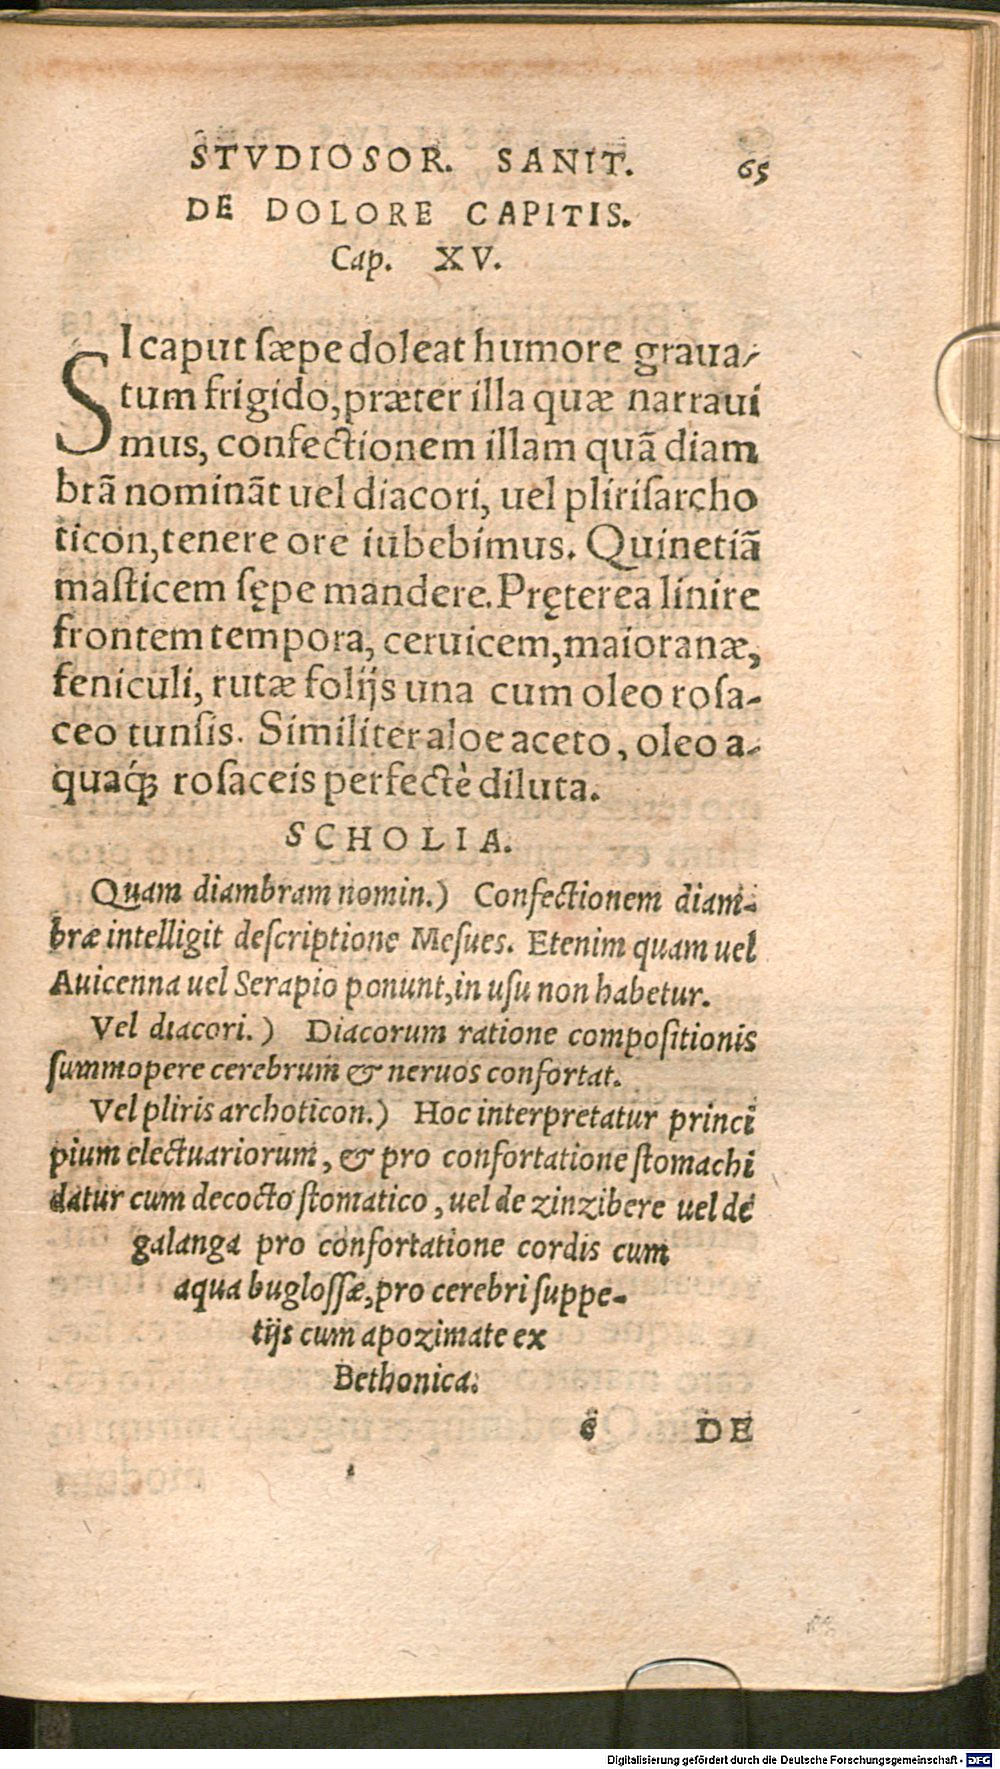 STVDIOSOR. SANIT. 65
DE DOLORE CAPITIS.
Cap. XV.
SI caput sæpe doleat humore graua-
tum frigido, præter illa quæ narraui
mus, confectionem illam quã diam
brã nominãt uel diacori, uel plirisarcho
ticon, tenere ore iubebimus. Quinetiã
masticem sępe mandere. Pręterea linire
frontem tempora, ceruicem, maioranæ,
feniculi, rutæ folijs una cum oleo rosa-
ceo tunsis. Similiter aloe aceto, oleo a-
quaq́; rosaceis perfectè diluta.
SCHOLIA.
Quam diambram nomin.) Confectionem diam-
bræ intelligit descriptione Mesues. Etenim quam uel
Auicenna uel Serapio ponunt, in usu non habetur.
Vel diacori.) Diacorum ratione compositionis
summopere cerebrum & neruos confortat.
Vel pliris archoticon.) Hoc interpretatur princi
pium electuariorum, & pro confortatione stomachi
datur cum decocto stomatico, uel de zinzibere uel de
galanga pro confortatione cordis cum
aqua buglossæ, pro cerebri suppe-
tijs cum apozimate ex
Bethonica.
DE
Digitalisierung gefördert durch die Deutsche Forschungsgemeinschaft - DFG